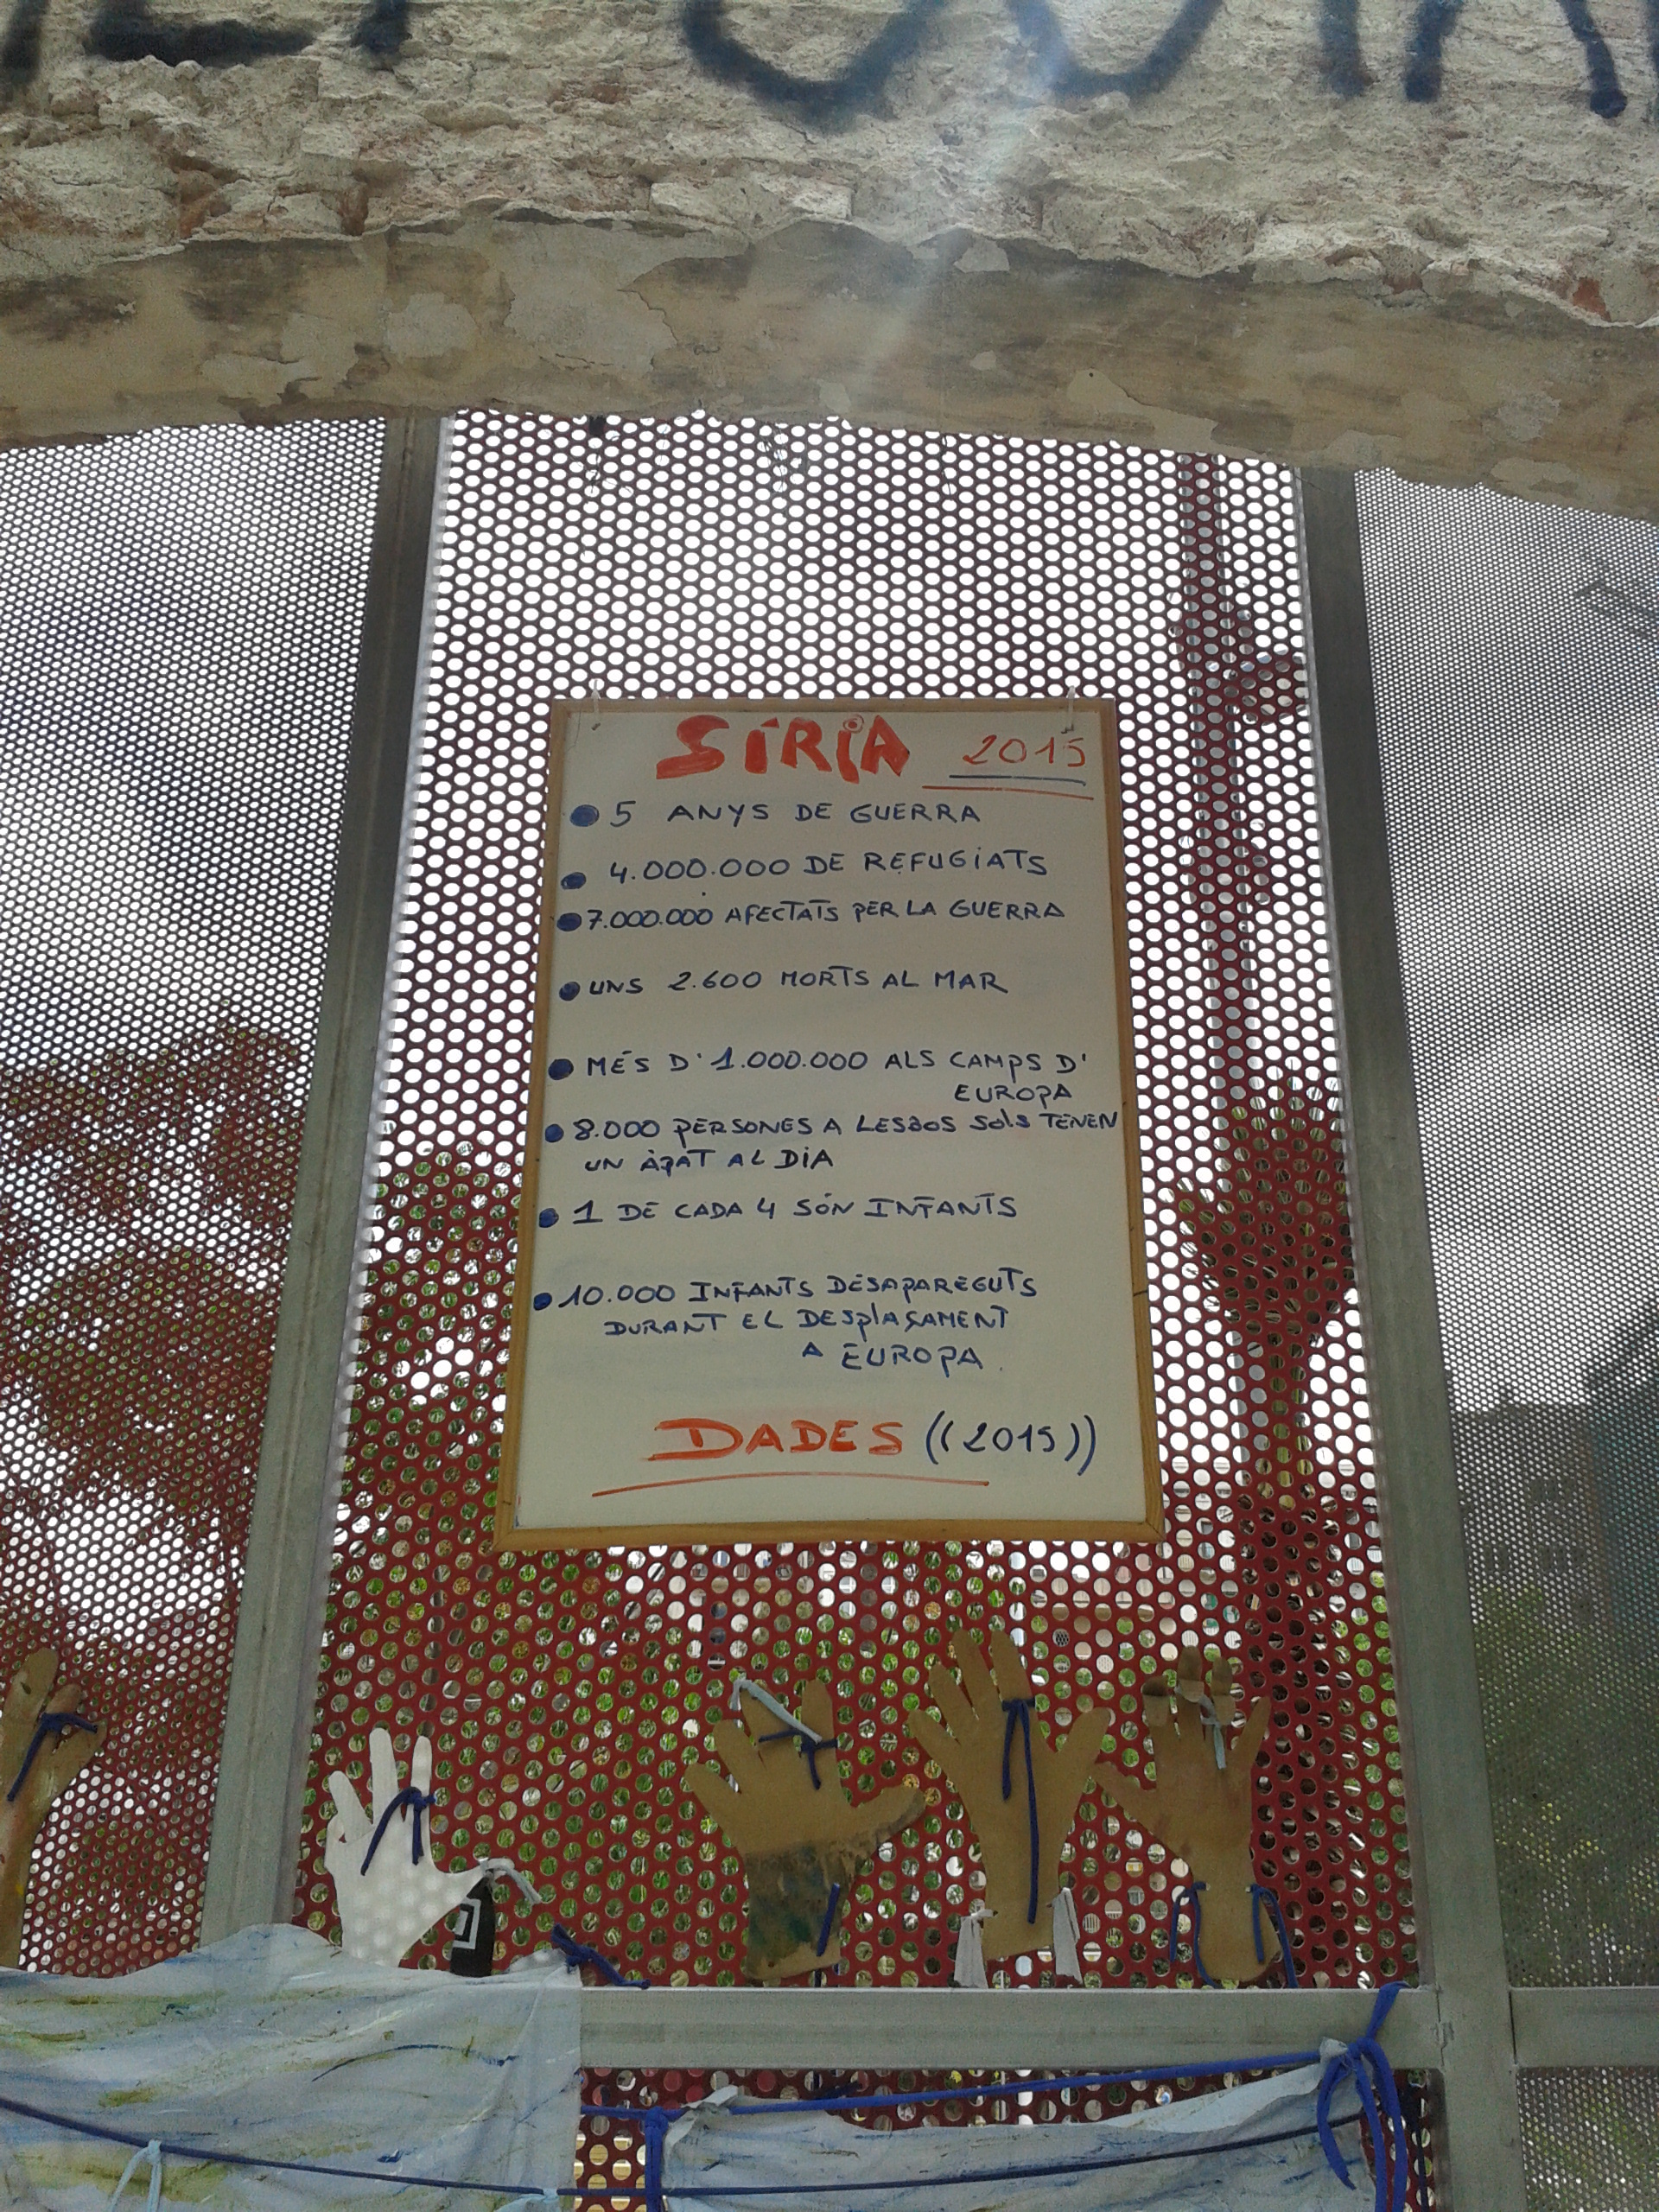 SÍRIA 2015
5 ANYS DE GUERRA
4.000.000 DE REFUGIATS
7.000.000 AFECTATS PER LA GUERRA
UNS 2.600 MORTS AL MAR
MÉS D'1.000.000 ALS CAMPS D'
EUROPA
8.000 PERSONES A LESBOS SOLS TENEN
UN ÀPAT AL DIA
1 DE CADA 4 SÓN INFANTS
10.000 INFANTS DESAPAREGUTS
DURANT EL DESPLAÇAMENT
A EUROPA.
DADES ((2015))